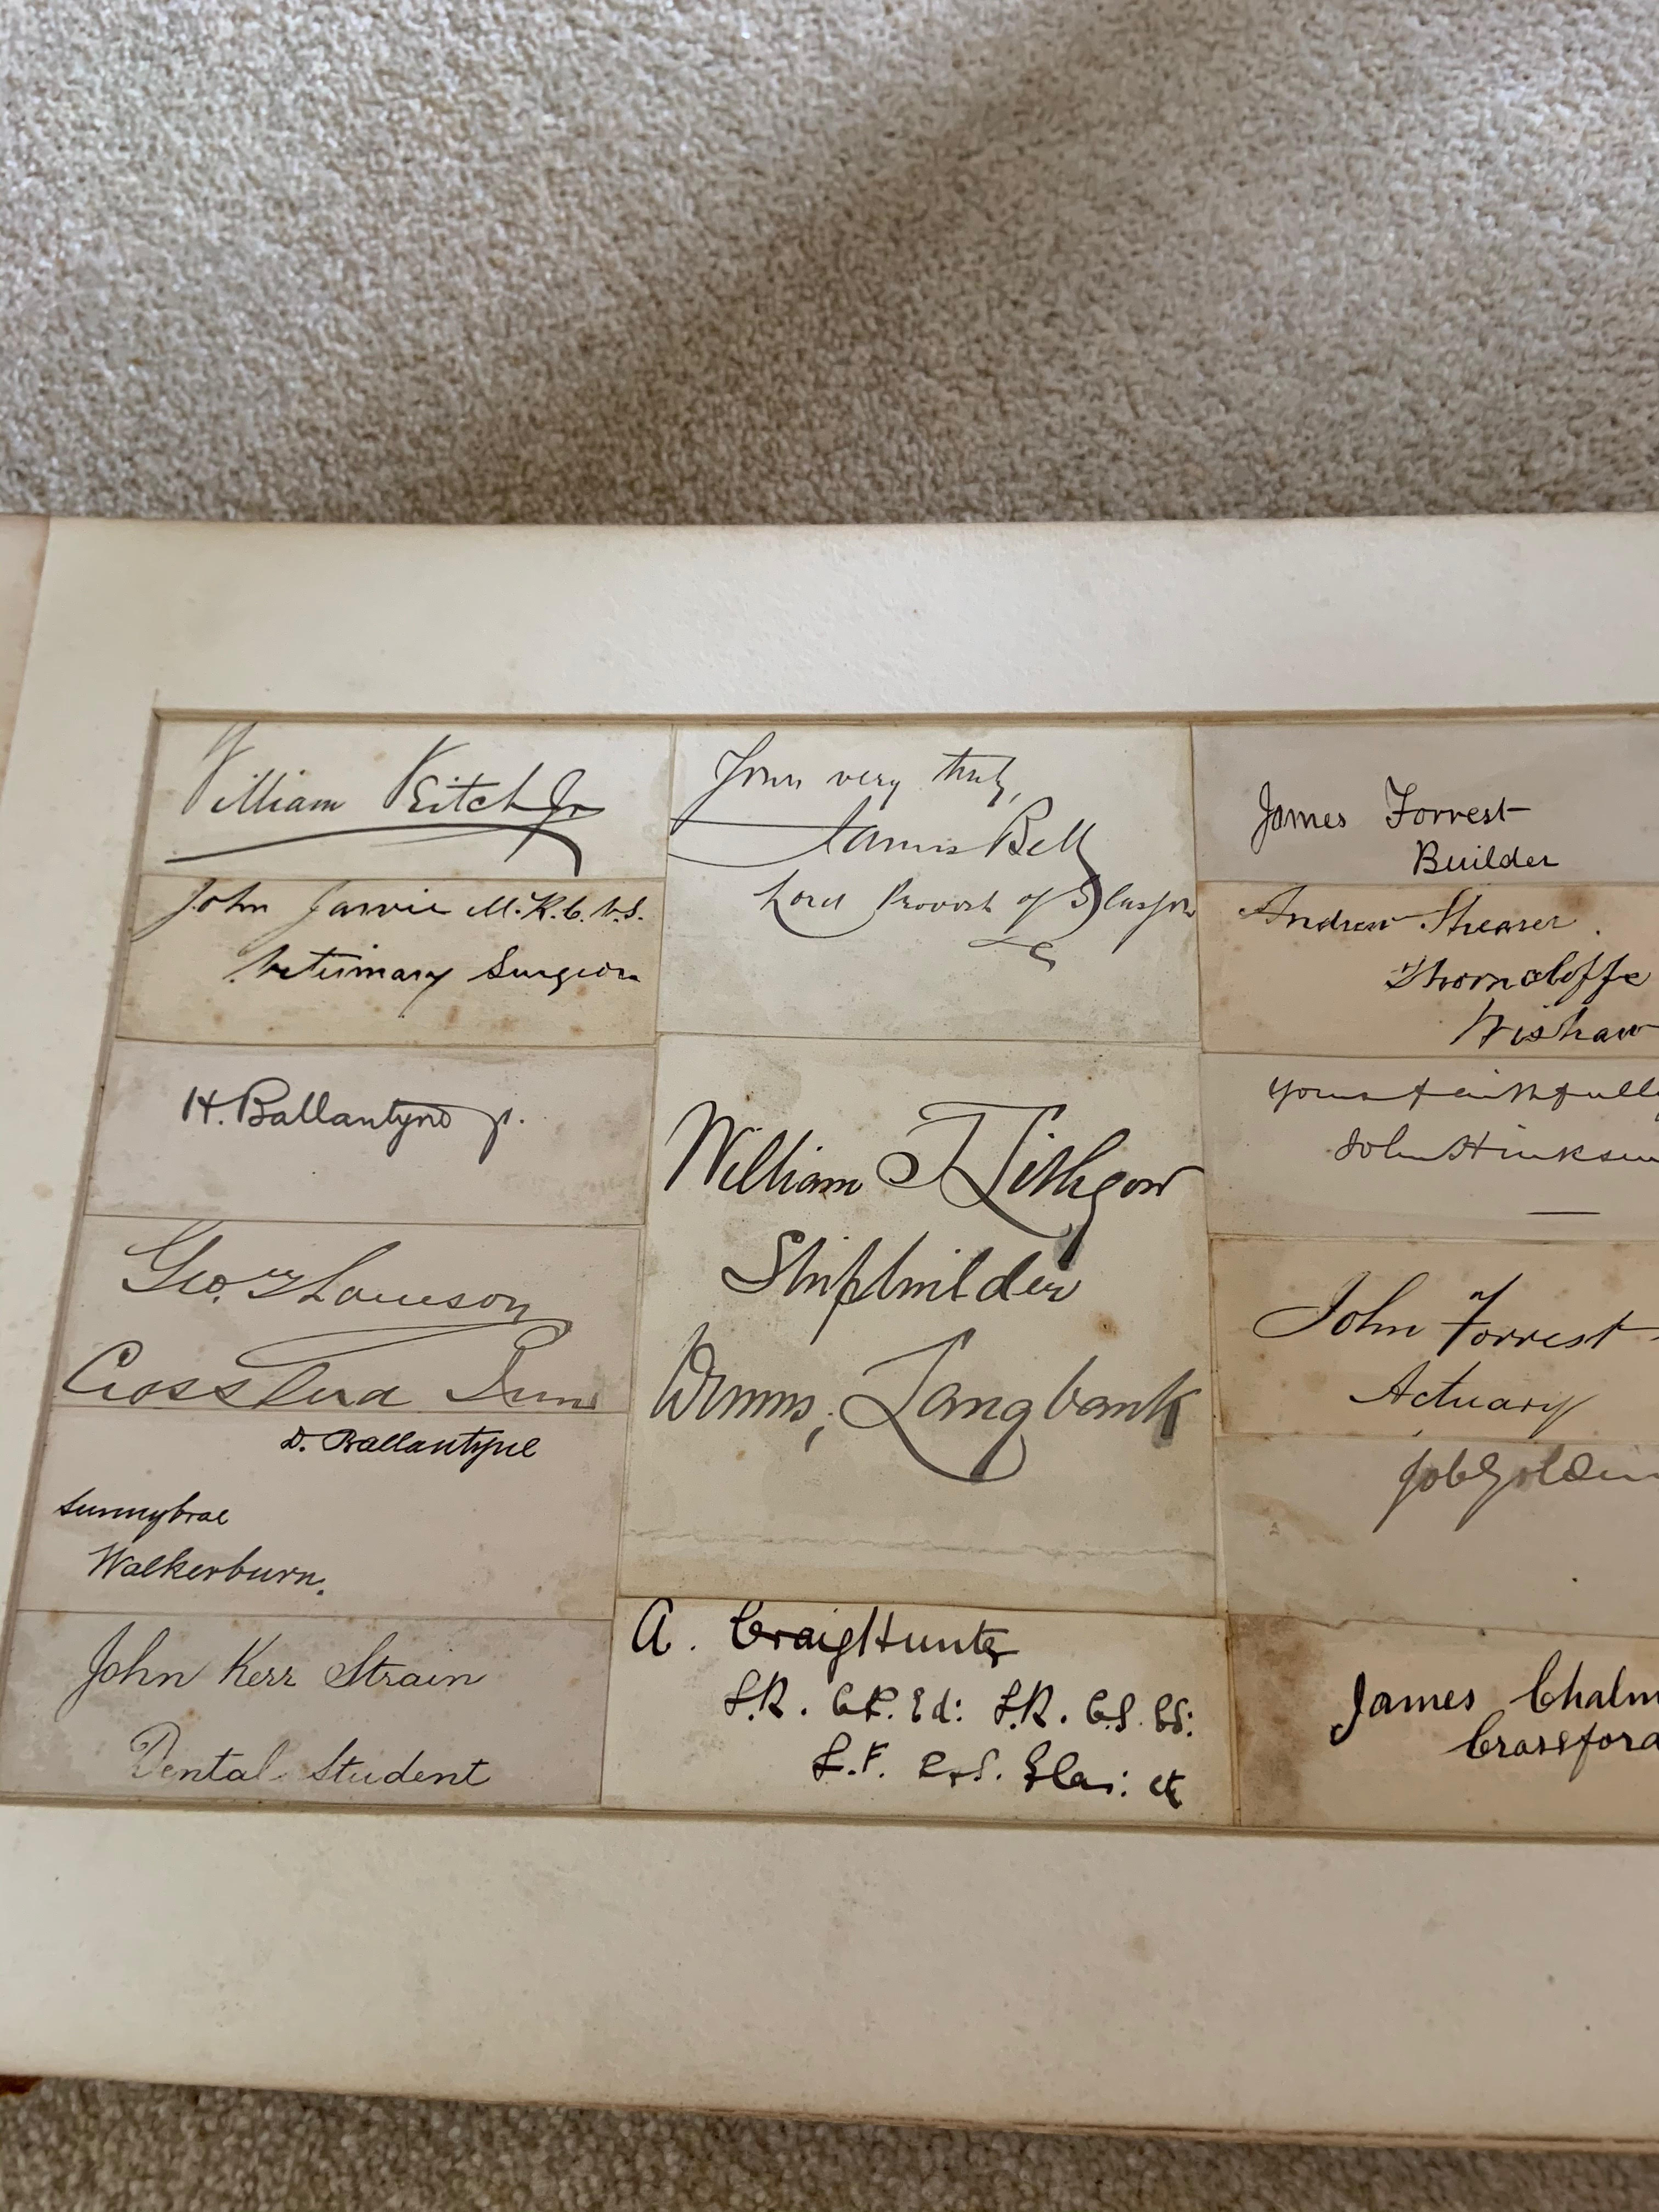 William Veitch Jr
John Jarvie M.R.C.V.S.
Veterinary Surgeon
H. Ballantyne jr.
Geo. Thomson
D. Ballantyne
Sunnybrae
Walkerburn.
John Kerr Strain
Dental Student
Yours very truly,
James Bell
Lord Provost of Glasgow
William T Lithgow
Shipbuilder
Drums, Langbank
A. Craig Hunter
L.R.C.P. Ed: L.R.C.S. Ed:
L.F.P.S. Glas: etc
James Forrest
Builder
Andrew Shearer.
Thorncliffe
Wishaw
Yours faithfully
John
John Forrest
Actuary
James Chalm
Crossford